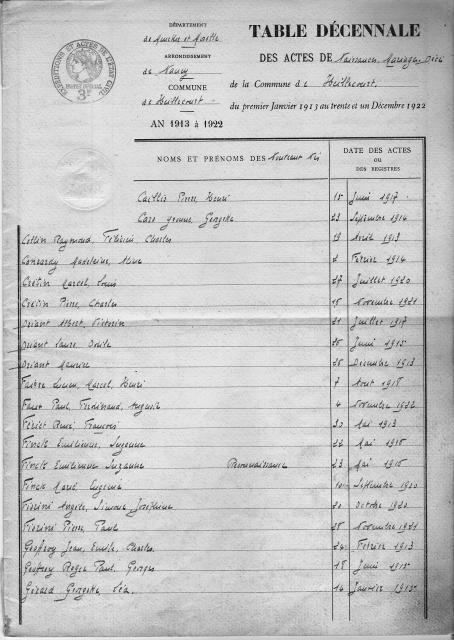 DÉPARTEMENT
de Meurthe et Moselle
ARRONDISSEMENT
de Nancy
COMMUNE
de Heillecourt
AN 1913 à 1922
TABLE DÉCENNALE
DES ACTES DE Naissances, Mariages, Décès
de la Commune de Heillecourt,
du premier Janvier 1913 au trente et un Décembre 1922
NOMS ET PRÉNOMS DES Nouveaux Nés
DATE DES ACTES
OU
DES REGISTRES
Pierre, Henri 15 Juin 1917
Georgette 23 Septembre 1914
Collin Raymond, Charles 19 Avril 1913
Madeleine, 2 Février 1914
Cretin Marcel, Louis 27 Juillet 1920
Cretin Pierre, Charles 15 Novembre 1921
Driant Albert, Victorin 21 Juillet 1917
Driant Laure, Odile 25 Juin 1915
Driant Maurice 28 Décembre 1913
Lucien, Marcel, Henri 7 Août 1918
Paul, Ferdinand, Auguste 4 Novembre 1922
René François 30 Mai 1913
Finck Emilienne, Suzanne 22 Mai 1915
Finck Emilienne Suzanne Reconnaissance 23 Mai 1915
Finck Marie Eugénie Septembre 1920
Fiorini Angèle, Simone Joséphine 20 Octobre 1920
Fiorini Pierre, Paul 28 Novembre 1921
Geoffroy Jean, Emile, Charles 24 Février 1913
Geoffroy Roger Paul Georges 18 Juin 1915
Gérard Georgette, Léa 14 Janvier 1915